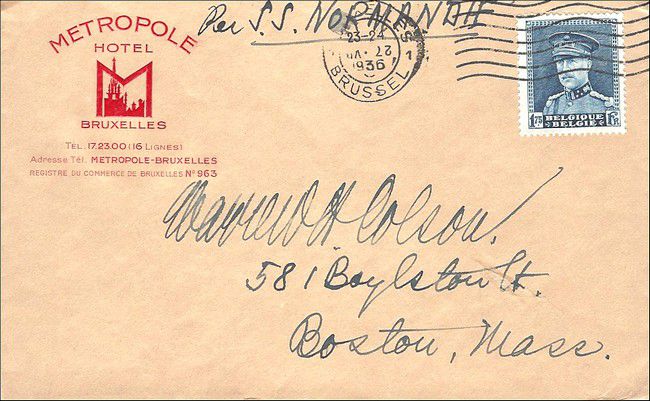 Per S.S. NORMANDIE
METROPOLE
HOTEL
M
BRUXELLES
TÉL. 17.23.00 (16 LIGNES)
Adresse Tél. METROPOLE-BRUXELLES
REGISTRE DU COMMERCE DE BRUXELLES Nº 963
23-24
1936
1
BRUSSEL
BELGIQUE
BELGIË
1.75 FR.
Warren H. Colson.
581 Boylston St.
Boston, Mass.